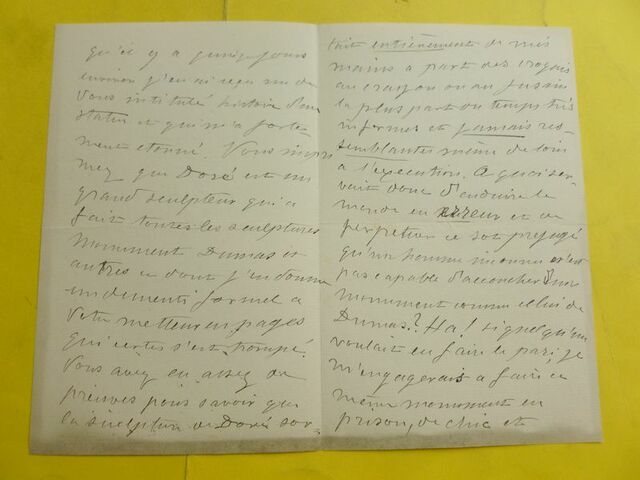 qu'il y a quinze jours
environ j'en ai reçu un de
vous intitulé, histoire d'une
statue et qui m'a forte-
ment etonné. Vous impri-
mez que Doré est un
grand sculpteur qui a
fait toutes les sculptures
Monument Dumas et
autres ce dont j'en donne
un dementi formel a
votre metteur en pages
qui certes s'est trompé.
Vous avez eu assez de
preuves pour savoir que
la sculpture de Doré sor-
tait entièrement de mes
mains a part des croquis
au crayon ou au fusain
la plus part du temps très
informes et jamais res-
semblantes même de loin
a l'execution. A quoi ser-
vait donc d'induire le
monde en erreur et de
perpetuer ce sot prejugé
qu'un homme inconnu n'est
pas capable d'accoucher d'un
monument comme celui de
Dumas? Ha! si quelqu'un
voulait en faire le pari, je
m'engagerais a faire ce
même monument en
prison, de chic et